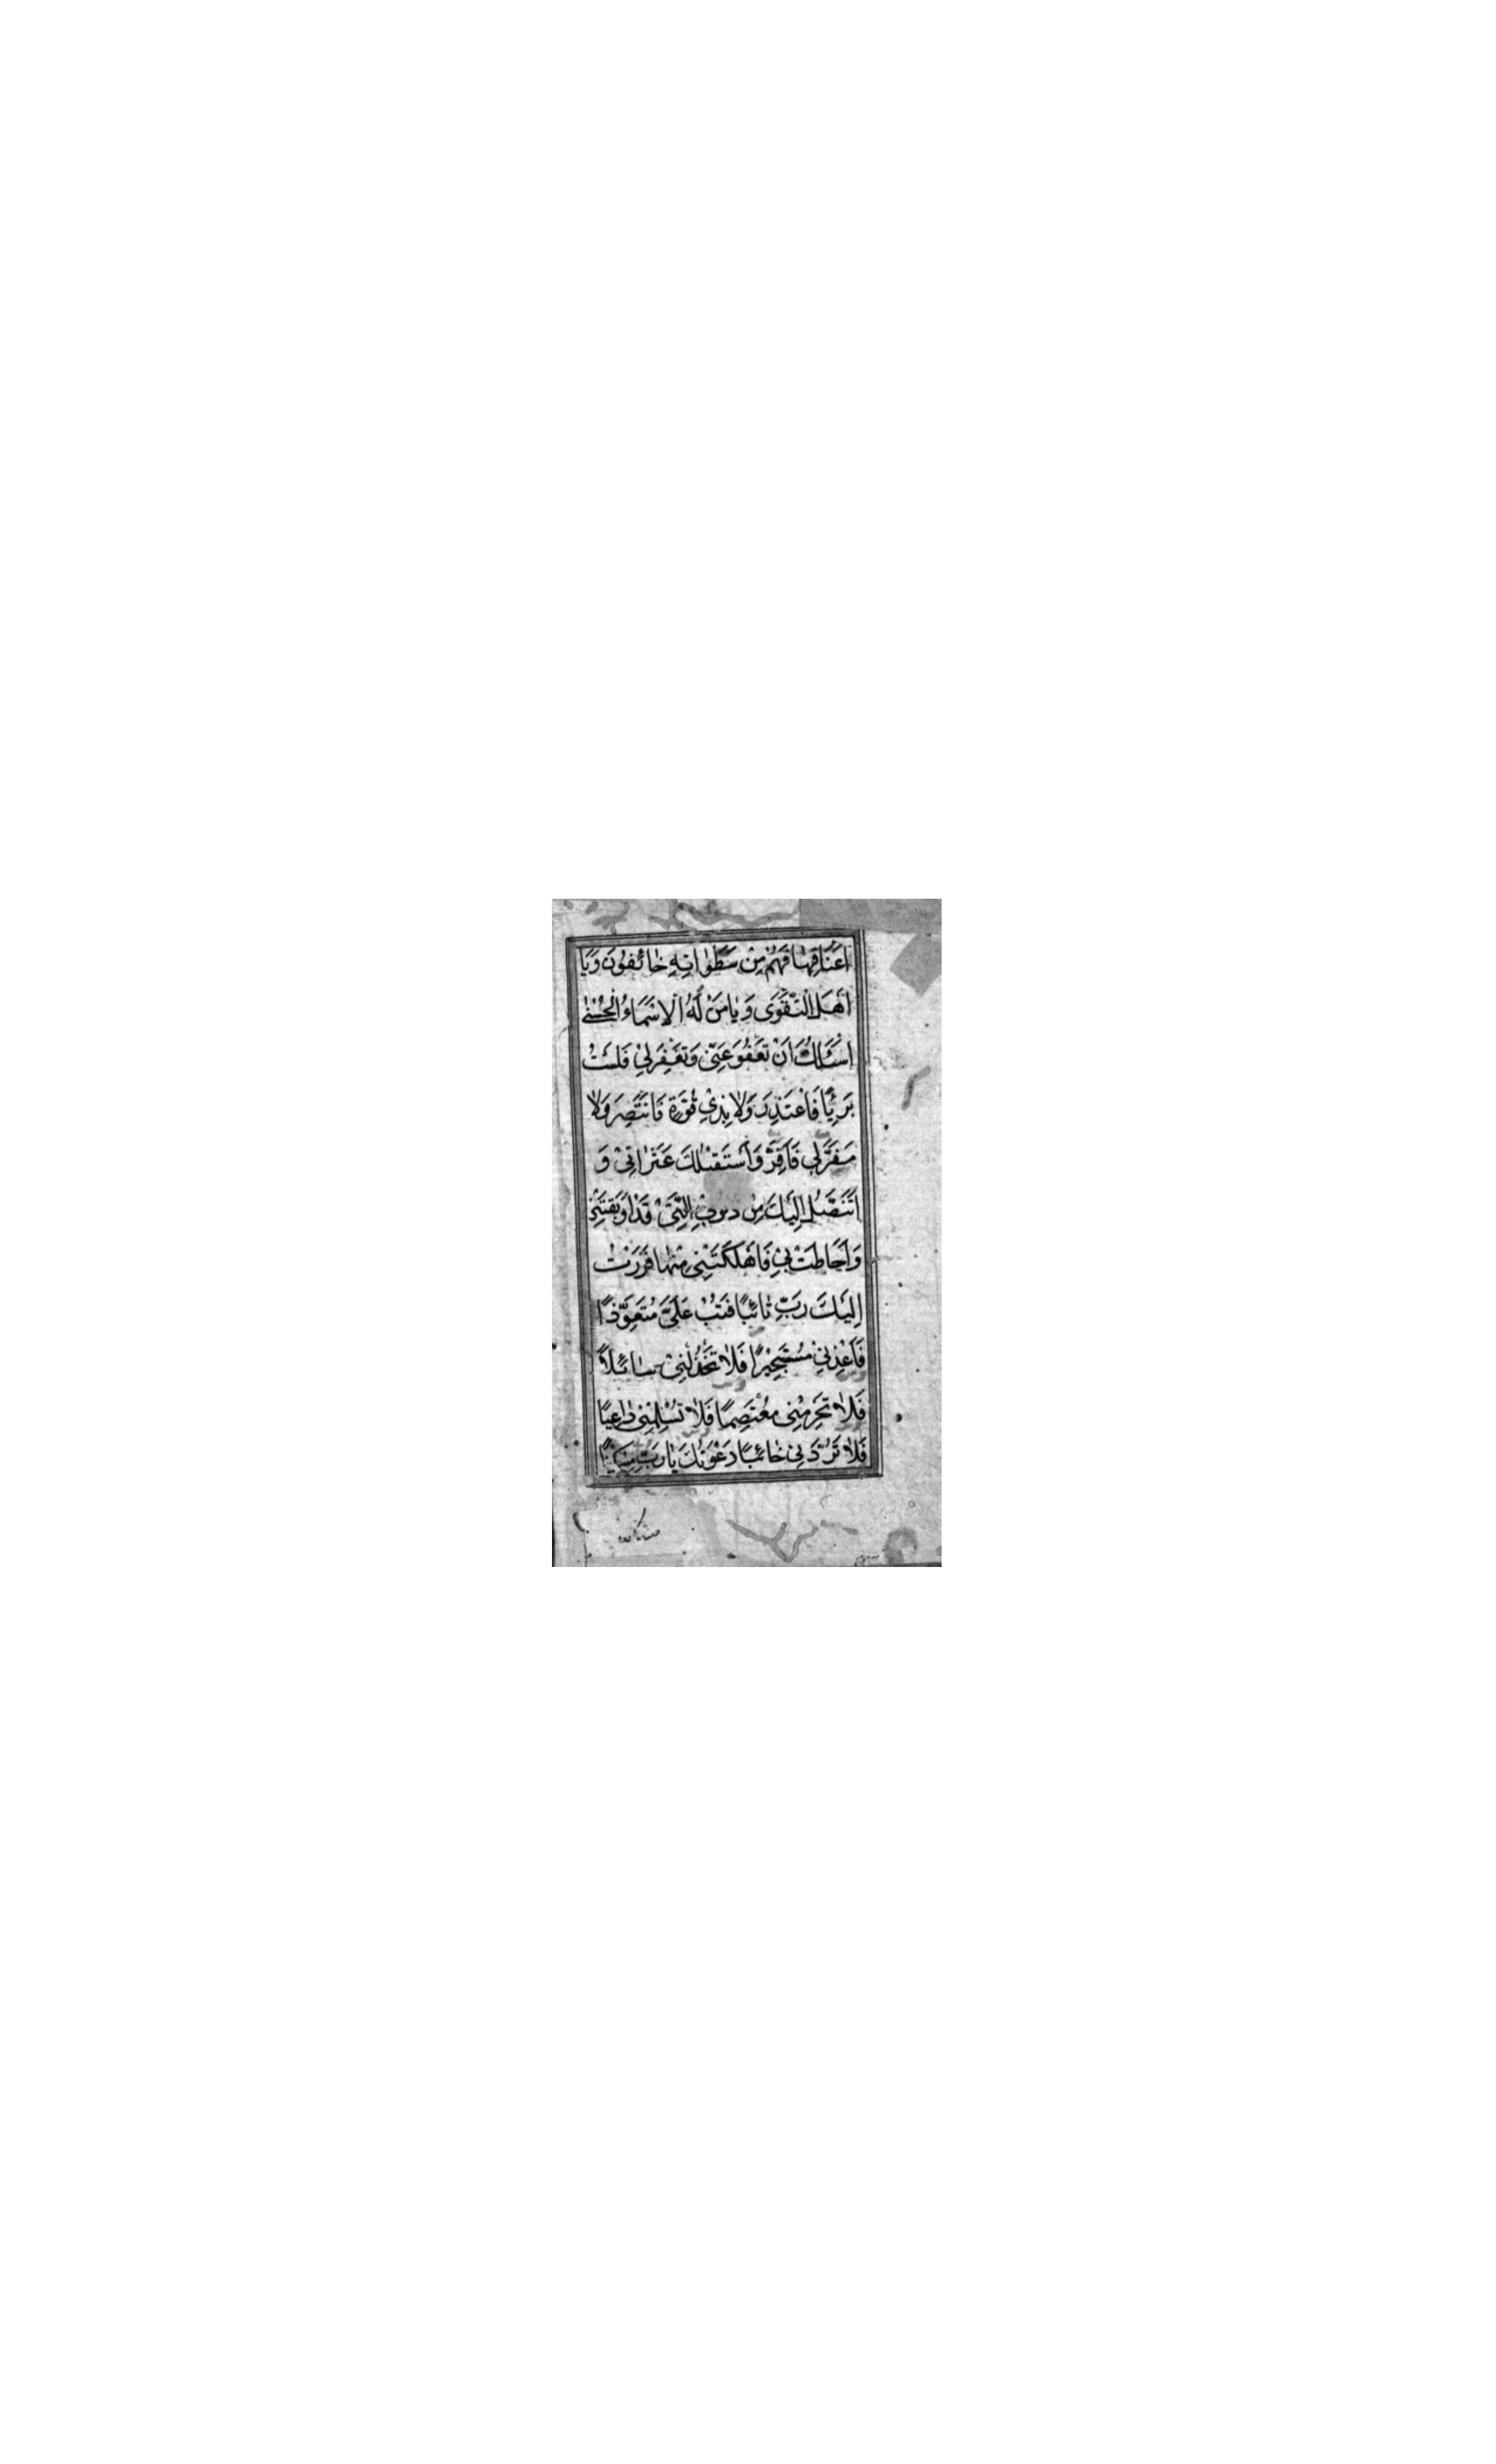 اَعْنَاقِهٰا فَهُمْ مِنْ سَطَوٰاتِهِ خٰائِفُونَ وَيَا
اَهْلَ التَّقْوَى وَيٰا مَنْ لَهُ الْاَسْمَاءُ الْحُسْنٰى
اَسْئَلُكَ اَنْ تَعْفُوَ عَنّى وَتَغْفِرَ لِي فَلَسْتُ
بَرِئًا فَاَعْتَذِرَ وَلَا بِذِي قُوَّةٍ فَاَنْتَصِرَ وَلٰا
مَفَرَّ لِي فَاَفِرَّ وَاَسْتَقْبِلُكَ عَثَرٰاتِىْ وَ
اَتَنَصَّلُ اِلَيْكَ مِنْ ذُنُوبِى الَّتِىْ قَدْ اَوْبَقَتْنِى
وَاَحَاطَتْ بِي فَاَهْلَكَتْنِي مِنْهٰا فَرَرْتُ
اِلَيْكَ رَبِّ تٰائِبًا فَتُبْ عَلَىَّ مُتَعَوِّذًا
فَاَعِذْنِي مُسْتَجِيْرًا فَلٰا تَخْذُلْنِىْ سٰائِلًا
فَلٰا تَحْرِمْنِي مُعْتَصِمًا فَلٰا تُسْلِمْنِي دٰاعِيًا
فَلٰا تَرُدَّنِي خٰائِبًا دَعَوْتُكَ يٰا رَبِّ مِسْكِيْنًا